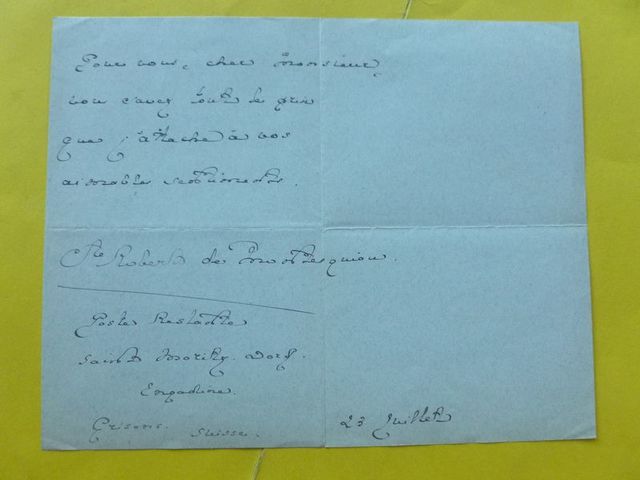 Pour vous, cher Monsieur,
vous savez tout le prix
que j'attache à vos
aimables sentiments.
Cte Robert de Montesquiou.
Poste Restante
Saint Moritz. Dorf.
Engadine.
Grisons. Suisse.
23 Juillet